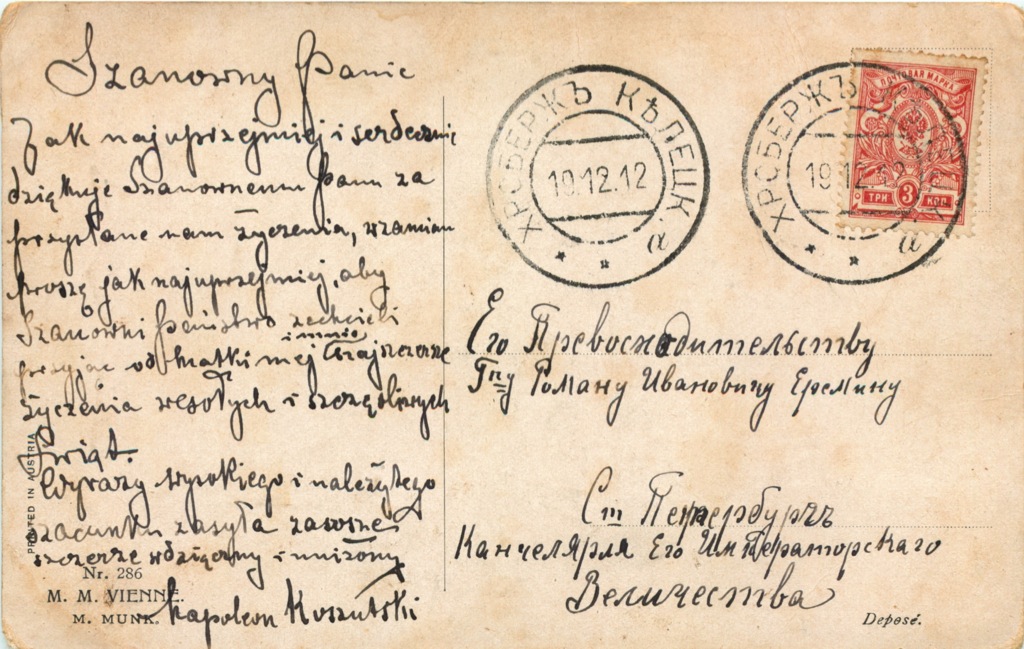 Szanowny Panie
Jak najuprzejmiej i serdecznie
dziękuje Szanownemu Panu za
przysłane nam życzenia, wzamian
proszę jak najuprzejmiej, aby
Szanowni Państwo zechcieli
i mnie
przyjąc od matki mej najszczersze
życzenia wesołych i szczęśliwych
Świąt.
Wyrazy wysokiego i należytego
szacunku zasyła zawsze
szczerze wdzięczny i uniżony
Napoleon Koszutski
PRINTED IN AUSTRIA
Nr. 286
M. M. VIENNE.
M. MUNK.
ХРОБЕРЖЪ КѢЛЕЦК.
19.12.12
а
ХРОБЕРЖЪ
19.12.12
а
ПОЧТОВАЯ МАРКА
ТРИ 3 КОП.
Его Превосходительству
Гпу Роману Ивановичу Еремину
Ст Петербургъ
Канчелярля Его Императорскаго
Величества
Déposé.